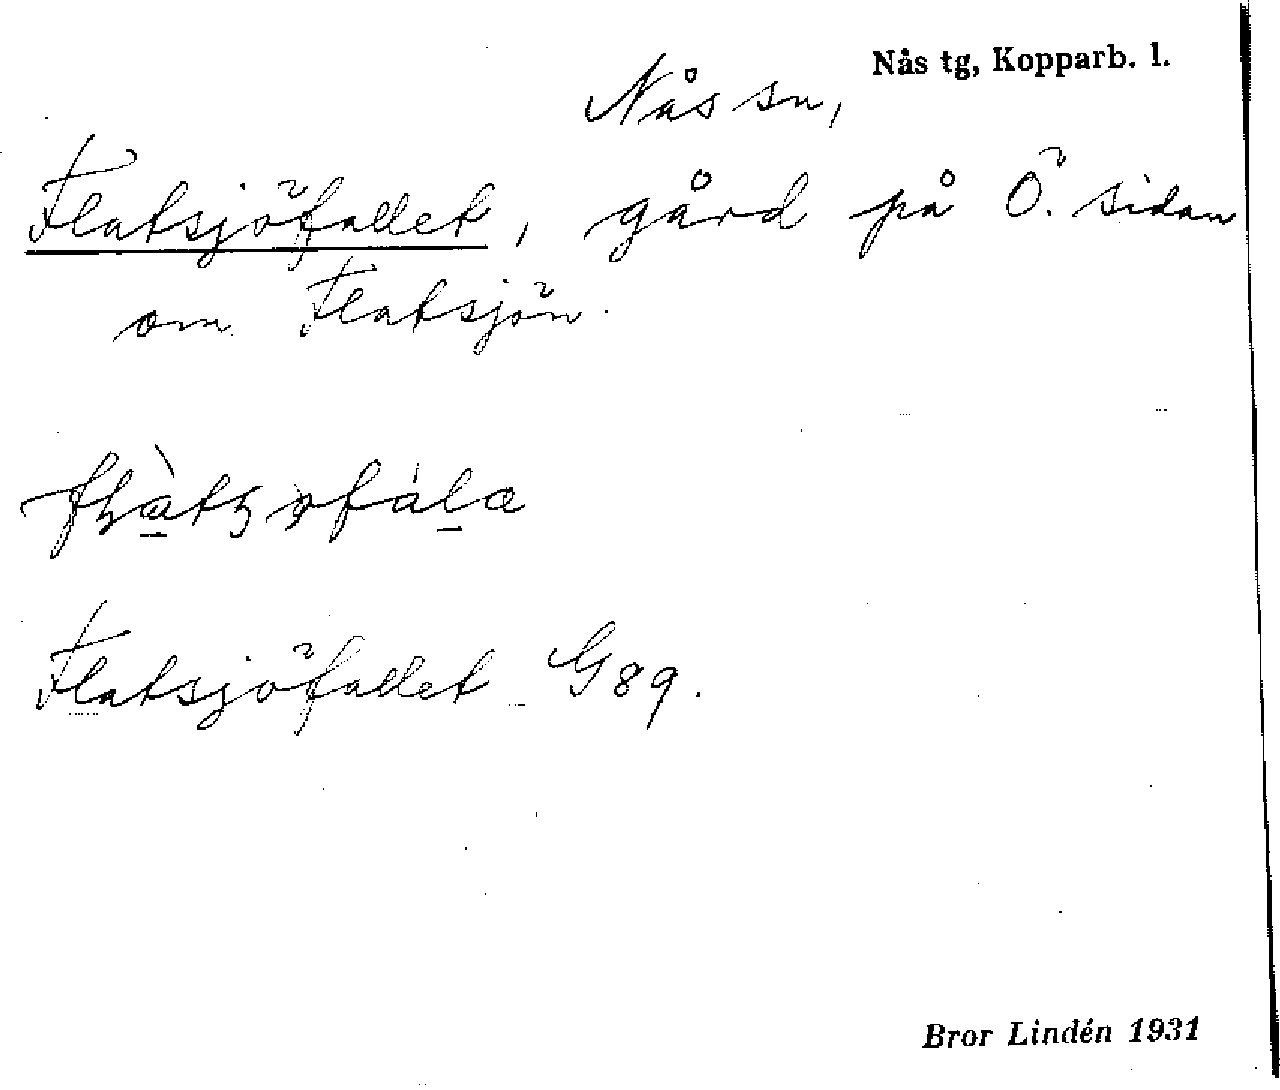 Nås tg, Kopparb. l.
Nås sn,
Flatsjöfallet, gård på Ö. sidan
om Flatsjön.
Flatsjöfallet G89.
Bror Lindén 1931